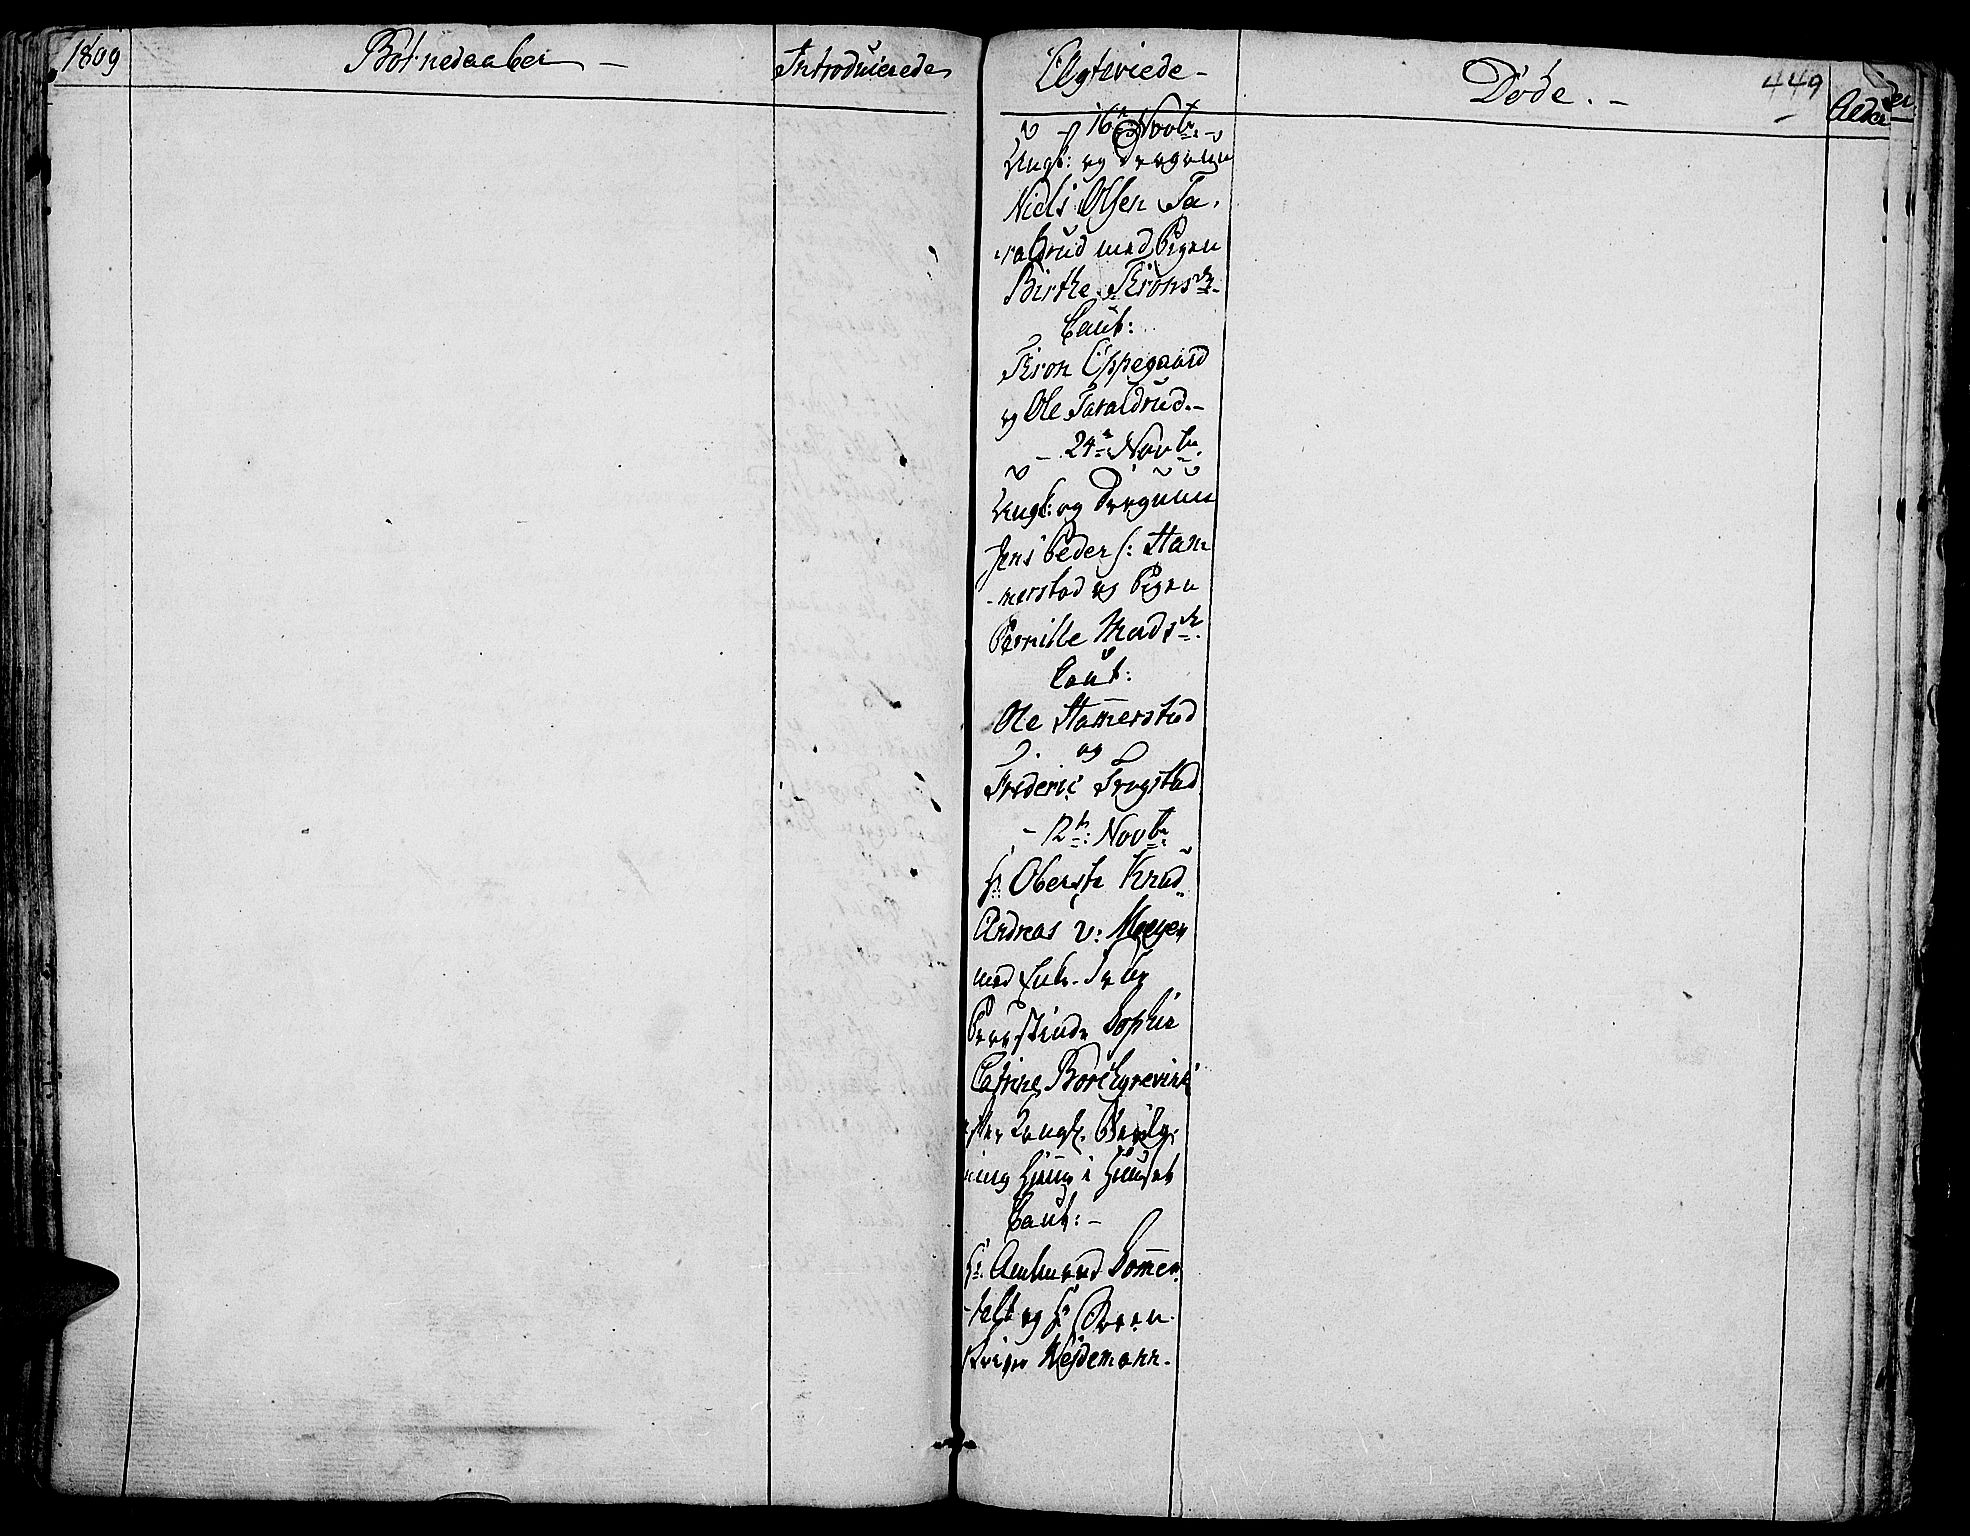 1809
Børnedaaber –
Introducerede
Ægteviede –
Døde. –
449
Alder
– 16de Novbr. –
Ungk: og Dragoun
Niels Olsen Ta-
-raldrud med Pigen
Birthe Thronsdr.
Caut:
Thron Oppegaard
og Ole Taraldrud. –
– 24de Novbr.
Ungk: og Dragoun
Jens Peders: Ham
-merstad og Pigen
Pernille Madsdr.
Caut:
Ole Ham̄erstad
og
Frideric Frogstad
– 12te: Novbr:
Hr. Oberste Knud
Andreas v: Meyer
med Enke-Frue
Sophie
Catrine Borchgrevink
efter Kongl. Bevilg-
ning hjeme i Huuset
Caut: –
Hr. Amtmand Som̄en
-felt og Hr. Soren-
skriver Wejdemann.